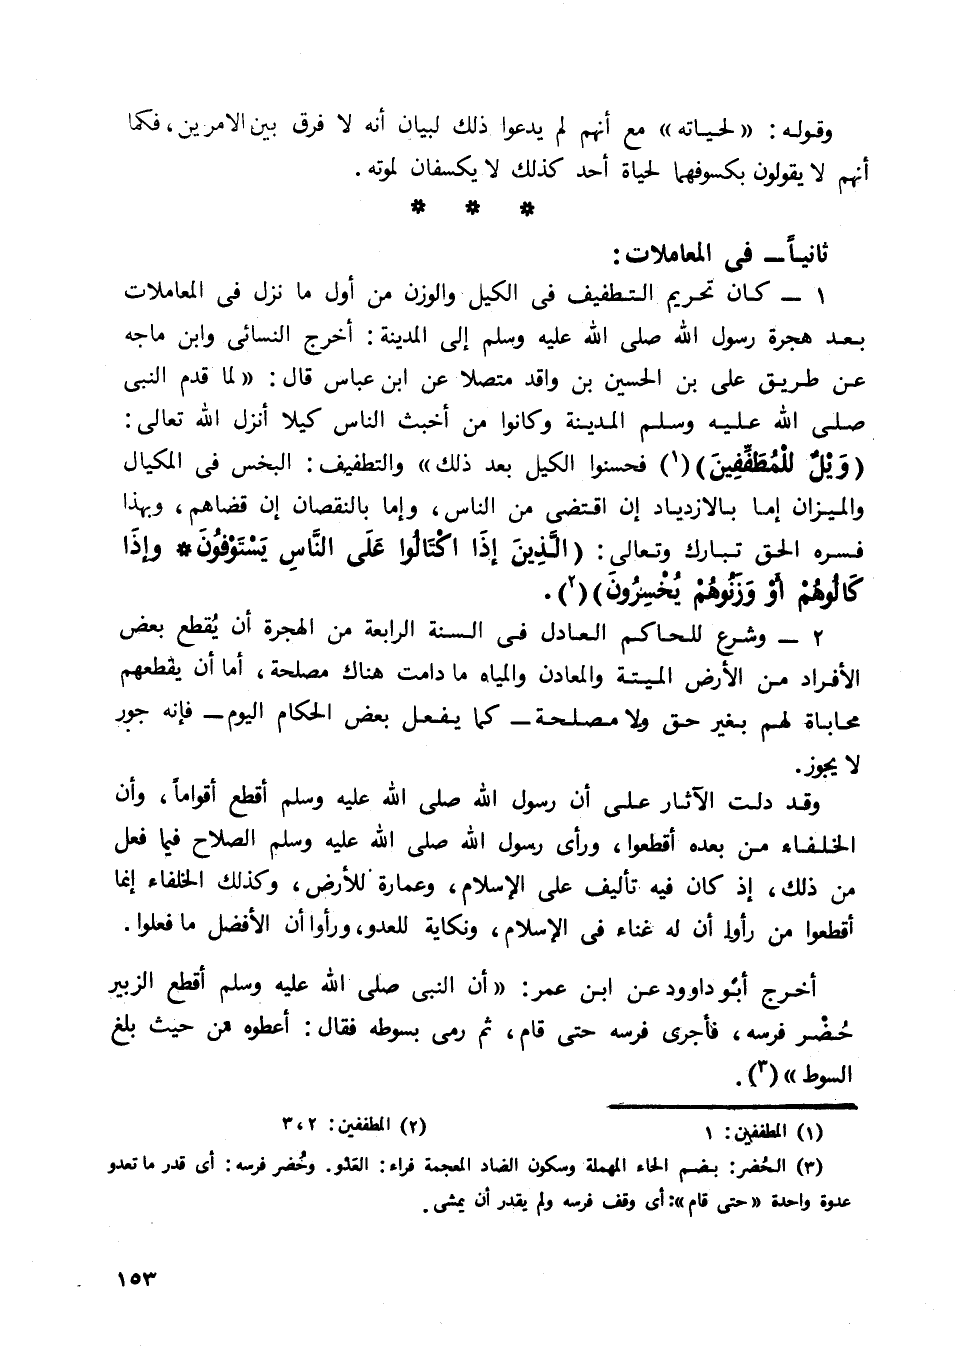 وقوله: «لحياته» مع أنهم لم يدعوا ذلك لبيان أنه لا فرق بين الامرين، فكما
أنهم لا يقولون بكسوفهما لحياة أحد كذلك لا يكسفان لموته.
* * *
ثانياً ــ في المعاملات:
١ ــ كان تحريم التطفيف في الكيل والوزن من أول ما نزل في المعاملات
بعد هجرة رسول الله صلى الله عليه وسلم إلى المدينة: أخرج النسائي وابن ماجه
عن طريق علي بن الحسين بن واقد متصلا عن ابن عباس قال: «لما قدم النبي
صلى الله عليه وسلم المدينة وكانوا من أخبث الناس كيلا أنزل الله تعالى:
(وَيْلٌ لِّلْمُطَفِّفِينَ)(١) فحسنوا الكيل بعد ذلك» والتطفيف: البخس في المكيال
والميزان إما بالازدياد إن اقتضى من الناس، وإما بالنقصان إن قضاهم، وبهذا
فسره الحق تبارك وتعالى: (الَّذِينَ إِذَا اكْتَالُوا عَلَى النَّاسِ يَسْتَوْفُونَ * وإِذَا
كَالُوهُمْ أَوْ وَزَنُوهُمْ يُخْسِرُونَ)(٢).
٢ ــ وشرع للحاكم العادل في السنة الرابعة من الهجرة أن يُقطع بعض
الأفراد من الأرض الميتة والمعادن والمياه ما دامت هناك مصلحة، أما أن يقطعهم
محاباة لهم بغير حق ولا مصلحة ــ كما يفعل بعض الحكام اليوم ــ فإنه جور
لا يجوز.
وقد دلت الآثار على أن رسول الله صلى الله عليه وسلم أقطع أقواماً، وأن
الخلفاء من بعده أقطعوا، ورأى رسول الله صلى الله عليه وسلم الصلاح فيما فعل
من ذلك، إذ كان فيه تأليف على الإسلام، وعمارة للأرض، وكذلك الخلفاء إنما
أقطعوا من رأوا أن له غناء في الإسلام، ونكاية للعدو، ورأوا أن الأفضل ما فعلوا.
أخرج أبو داوود عن ابن عمر: «أن النبي صلى الله عليه وسلم أقطع الزبير
حُضْر فرسه، فأجرى فرسه حتى قام، ثم رمى بسوطه فقال: أعطوه من حيث بلغ
السوط»(٣).
(١) المطففين: ١
(٢) المطففين: ٢، ٣
(٣) الحُضر: بضم الحاء المهملة وسكون الضاد المعجمة فراء: العَدْو. وحُضر فرسه: أي قدر ما تعدو
عدوة واحدة «حتى قام»: أي وقف فرسه ولم يقدر أن يمشي.
١٥٣